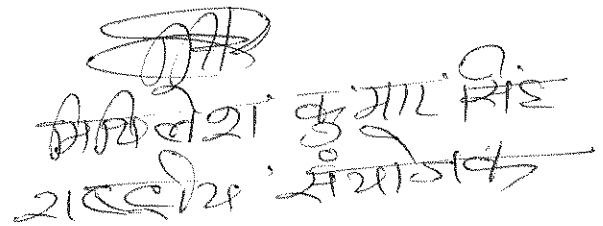 मिथिलेश कुमार सिंह
राष्ट्रीय संयोजक